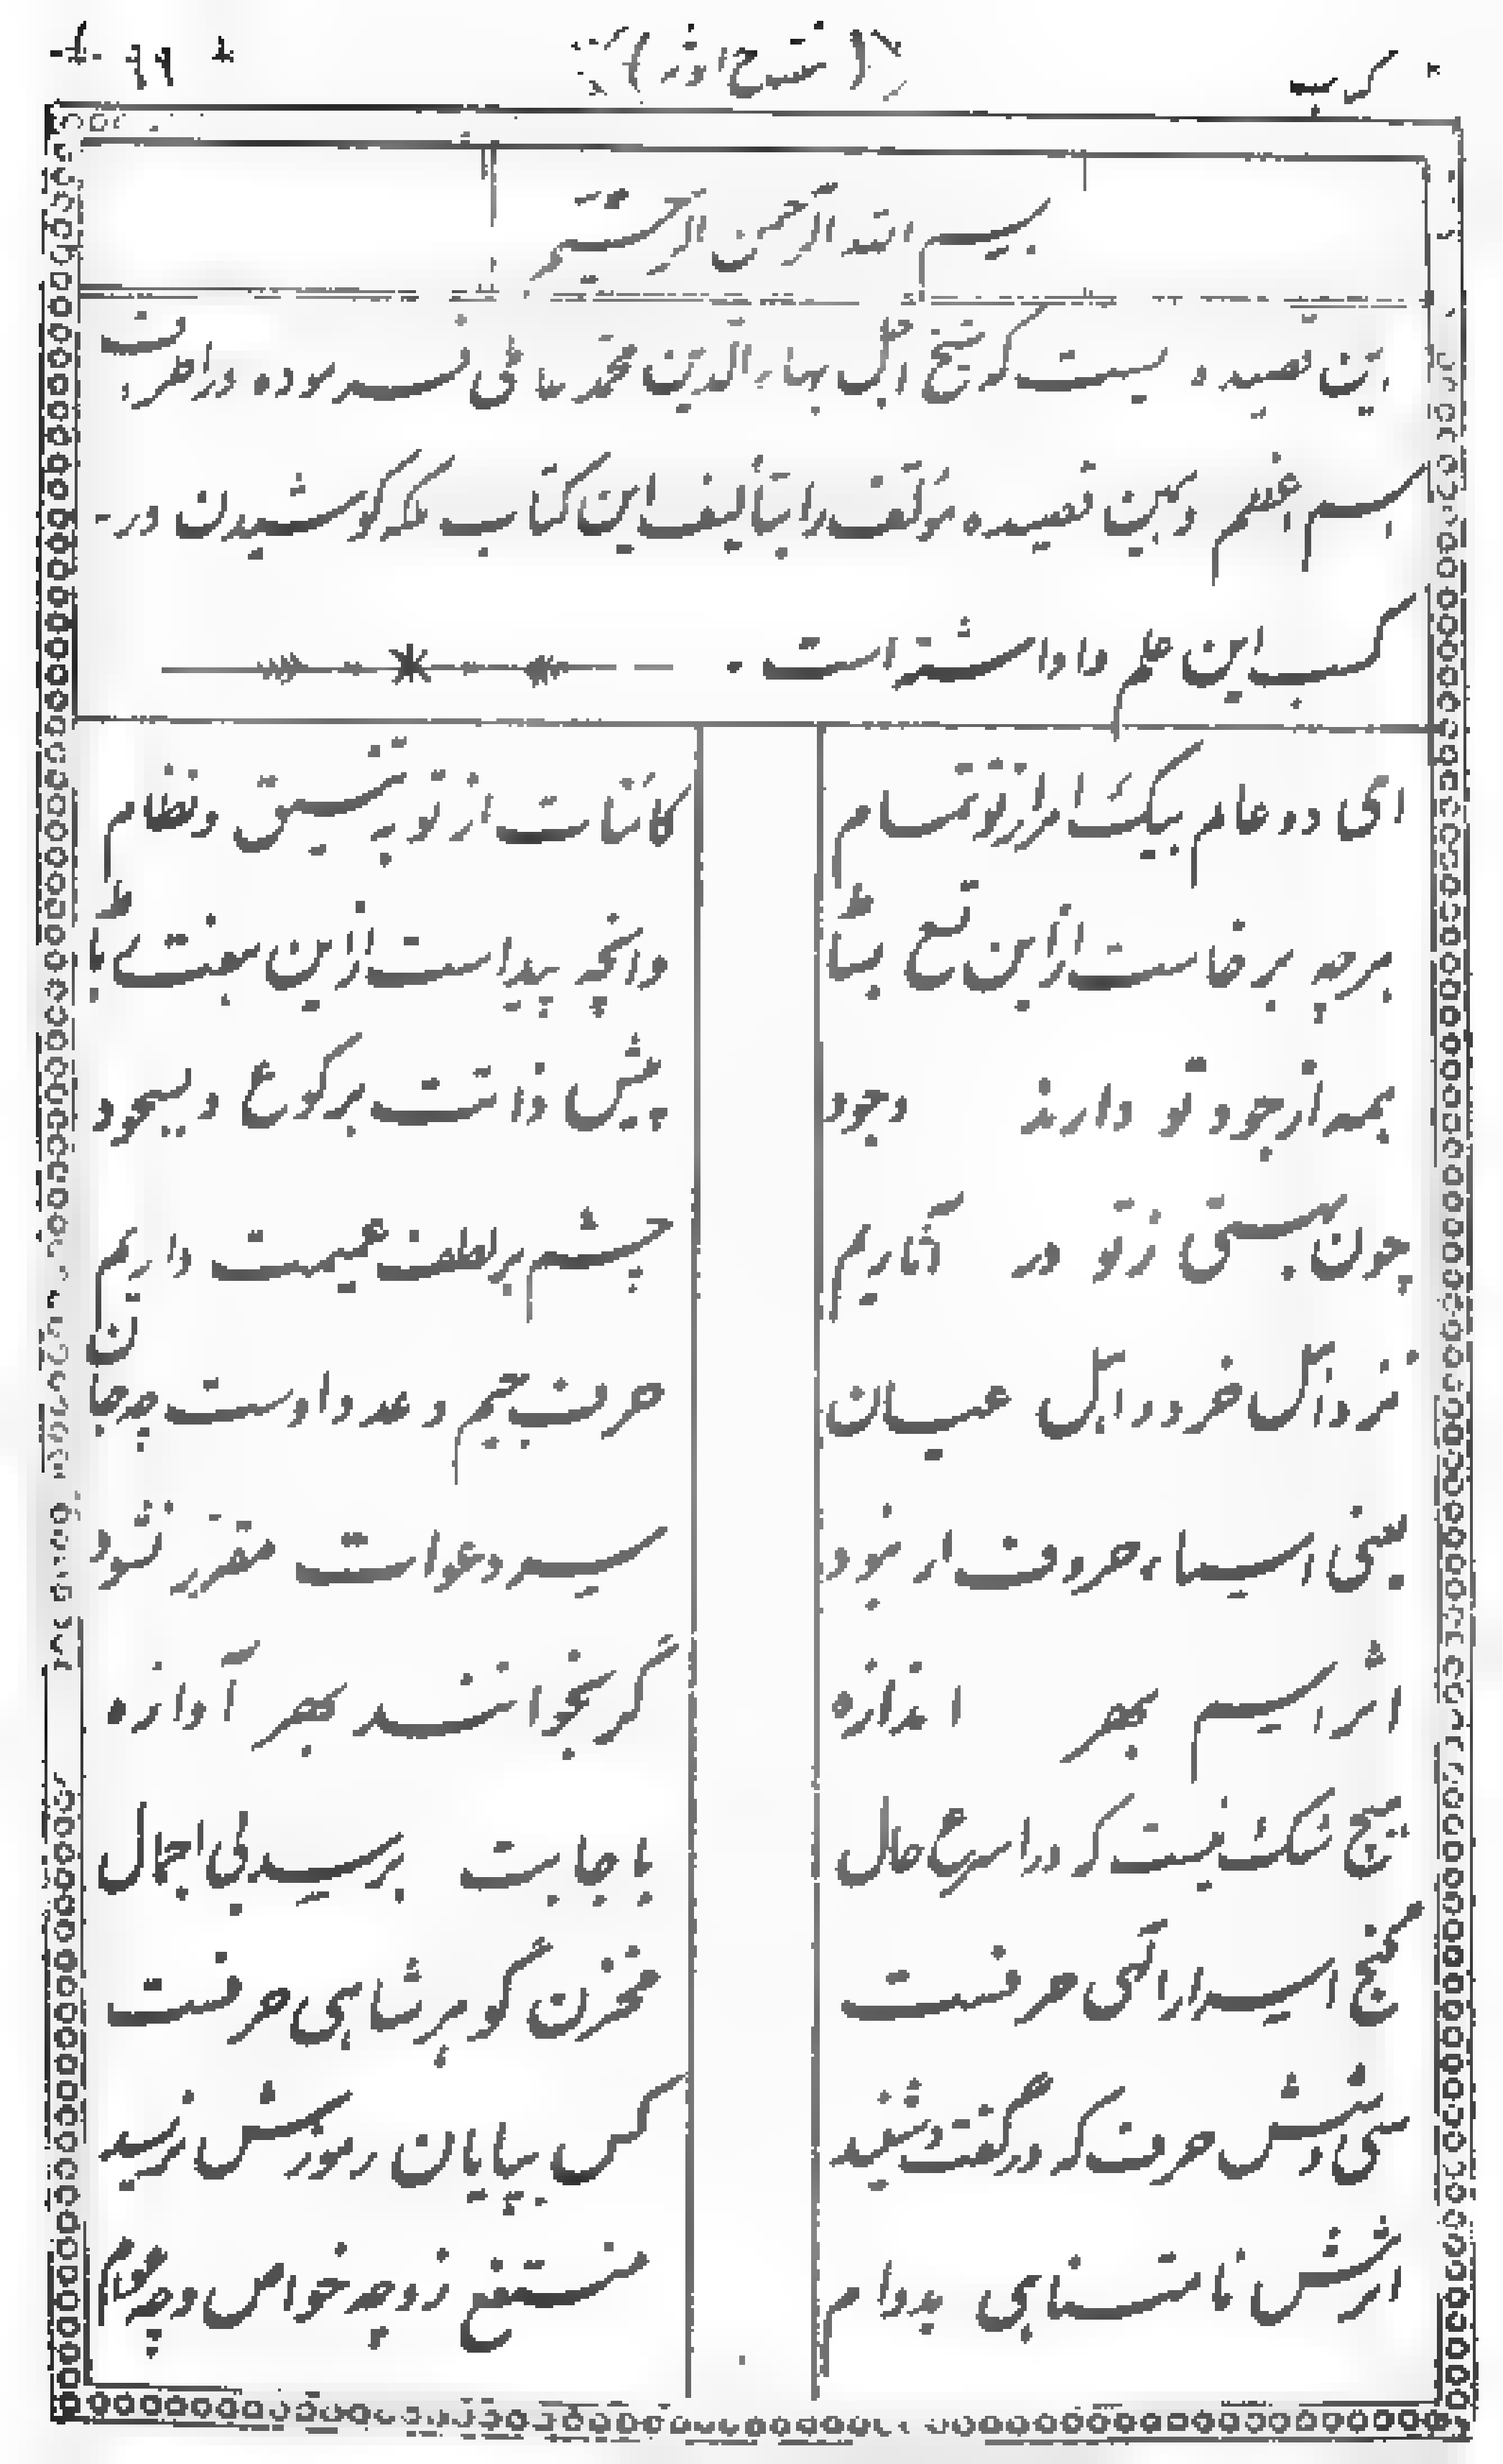 کرب
۶۹
بسم الله الرحمن الرحیم
این قصیده ایست که شیخ اجل بهاء الدین محمد عاملی فرموده در اطراف
اسم اعظم و همین قصیده مؤلف را بتألیف این کتاب بلکه کوشیدن در
کسب این علم وا داشته است
ای دو عالم بیک امر از تو تمام
کائنات از تو به تنسیق و نظام
هرچه برخاست از این تسع بساط
وانچه پیداست از این هفت رباط
همه از جود تو دارند وجود
پیش ذاتت برکوع و بسجود
چون بهستی ز تو در آثاریم
چشم بر لطف عمیمت داریم
نزد اهل خرد و اهل عیان
حرف جیم و عدد اوست چه جان
یعنی اسماء حروف ار نبود
سیر دعوات مقرر نشود
اثر اسم بهر اندازه
گر بخوانند بهر آوازه
هیچ شک نیست که در اسرع حال
باجابت برسد بی اجمال
گنج اسرار الهی حرفست
مخزن گوهر شاهی حرفست
سی و شش حرف که در گفت و شنید
کس بپایان رموزش نرسید
اثرش نامتناهی بدوام
منتفع زو چه خواص و چه عوام